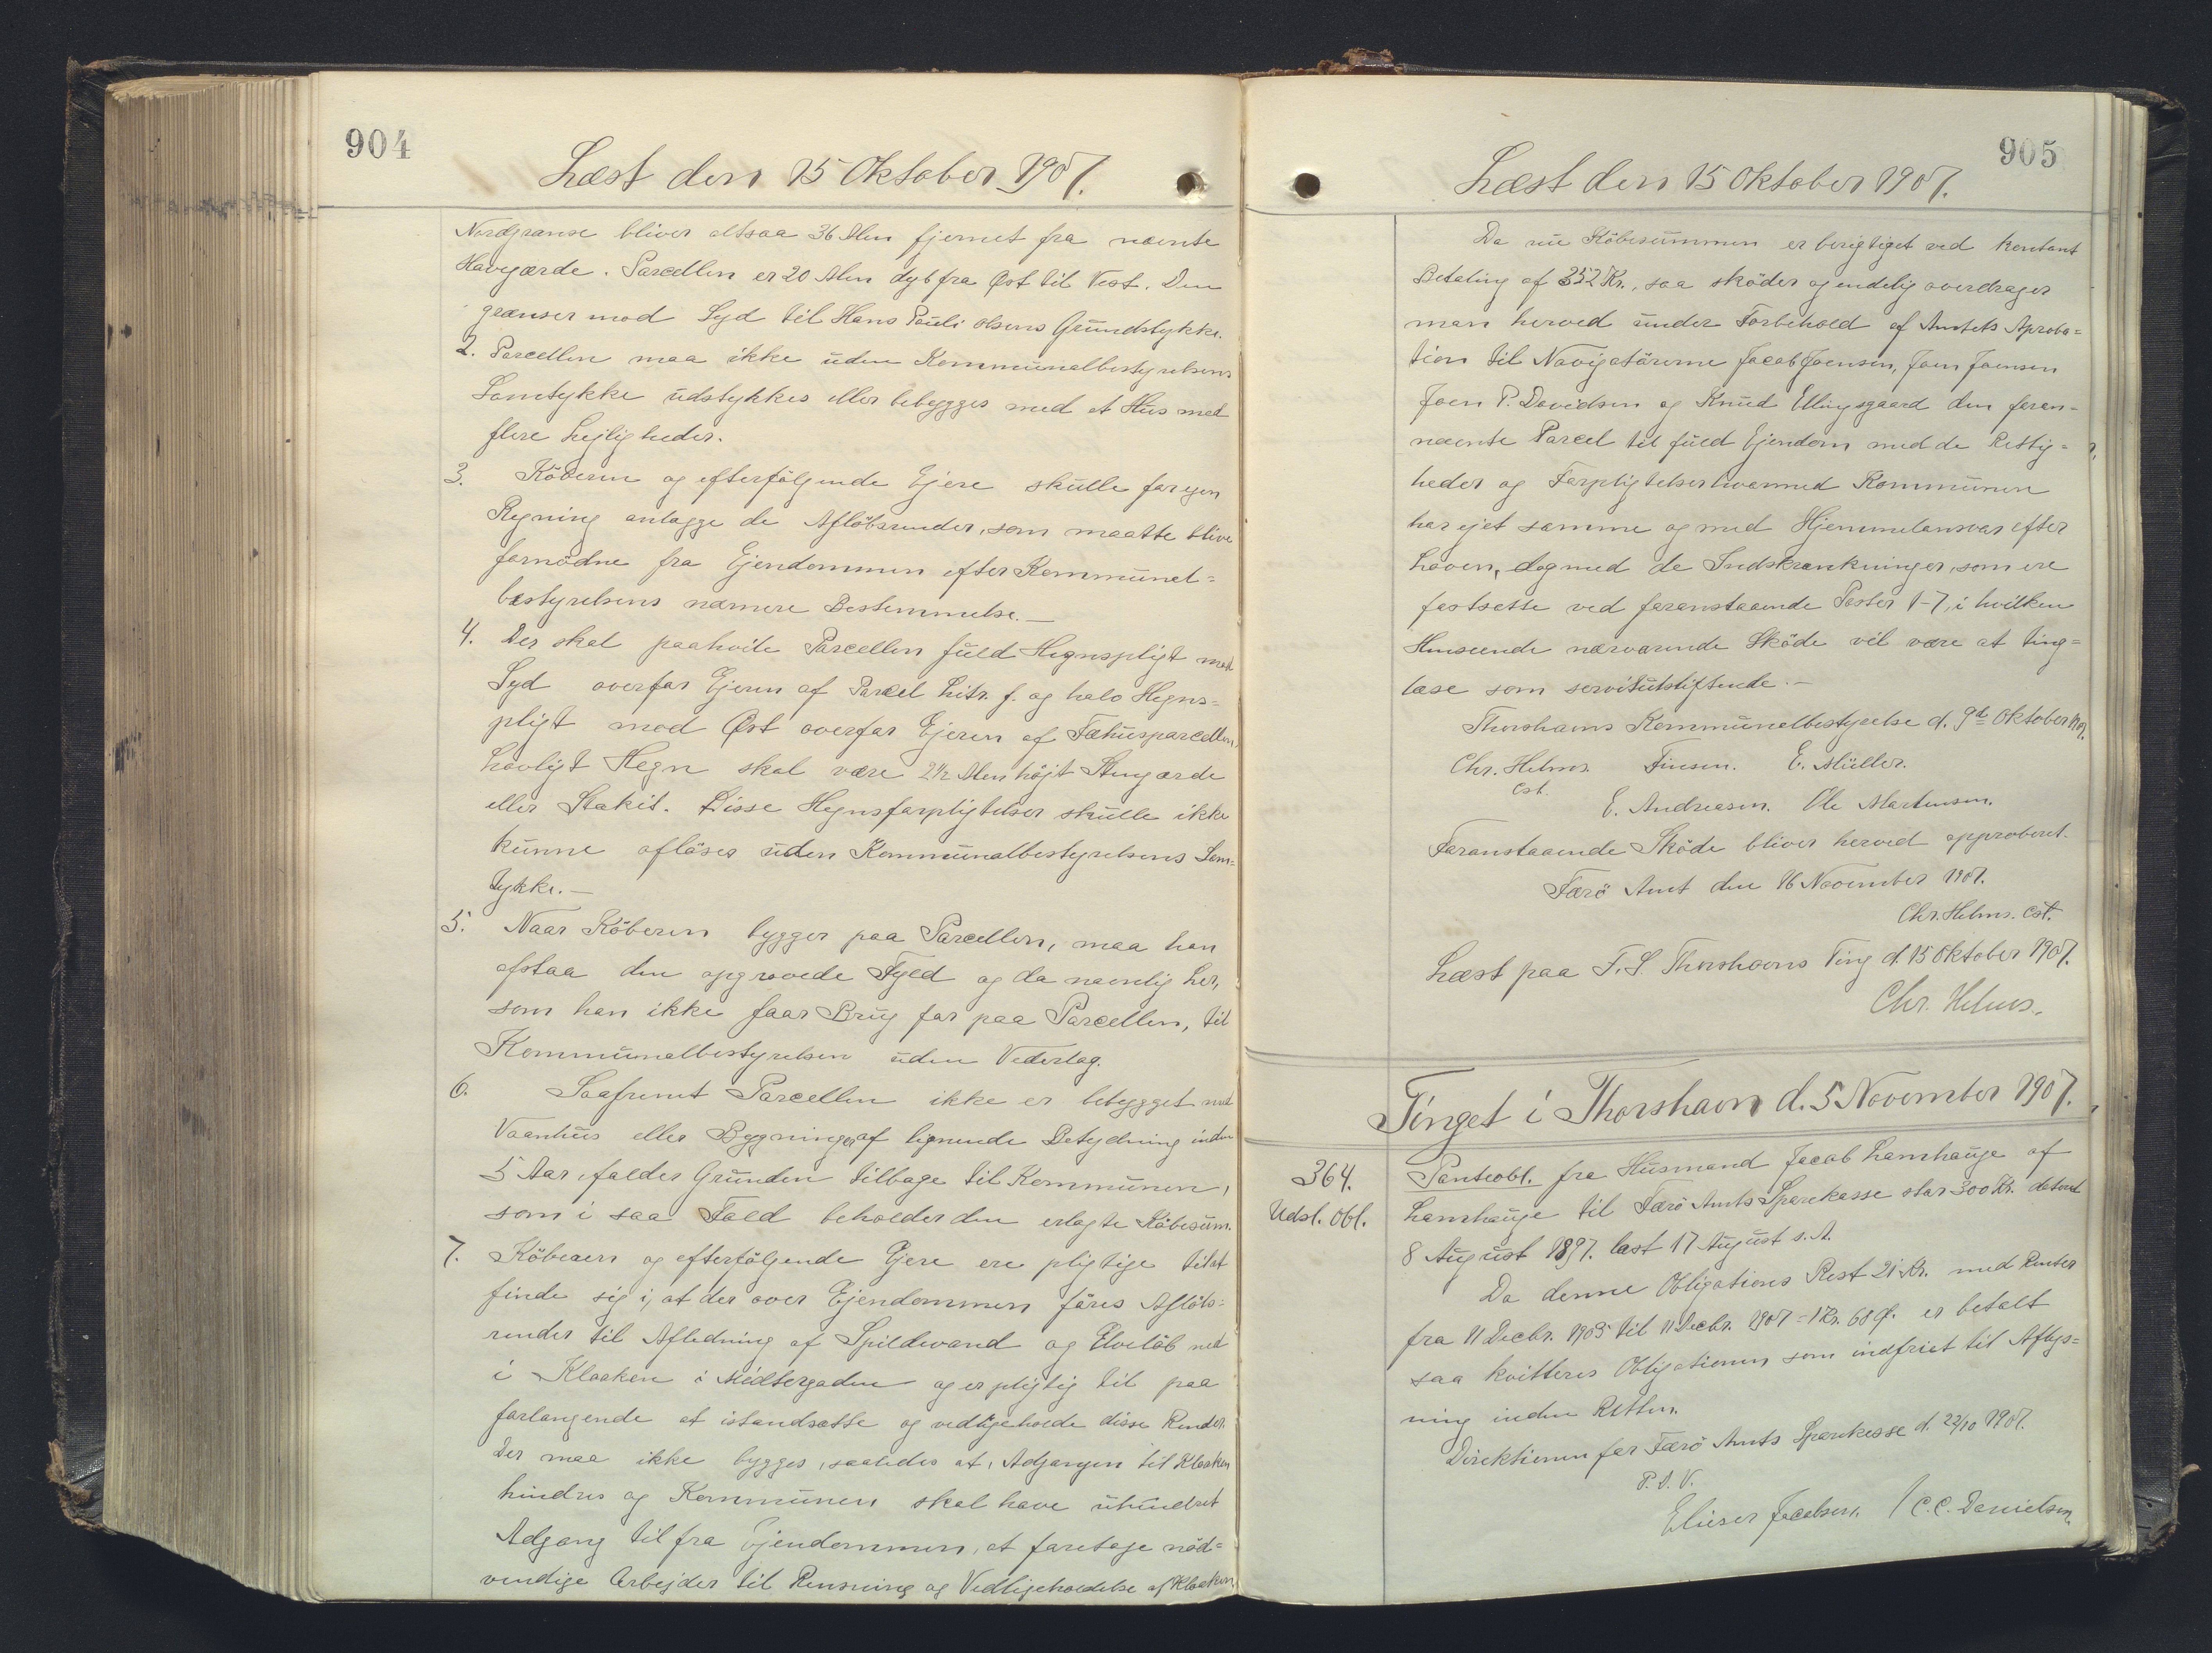 904
Læst den 15 Oktober 1907.
Nordgrænse bliver altsaa 36 Alen fjernet fra nævnte
Havegærde. Parcellen er 20 Alen dyb fra Øst til Vest. Den
grænser mod Syd til Hans Pauli Olsens Grundstykke.
2. Parcellen maa ikke uden Kommunalbestyrelsens
Samtykke udstykkes eller bebygges med et Hus med
flere Lejligheder.
3. Köberen og efterfölgende Ejere skulle for egen
Regning anlægge de Aflöbsrender, som maatte blive
fornödne fra Ejendommen efter Kommunal=
bestyrelsens nærmere Bestemmelse.—
4. Der skal paahvile Parcellen fuld Hegnspligt mod
Syd overfor Ejeren af Parcel Litr. f. og halv Hegns=
pligt mod Øst overfor Ejeren af Fæhusparcellen,
Lovligt Hegn skal være 2½ Alen höjt Stengærde
eller Stakit. Disse Hegnsforpligtelser skulle ikke
kunne aflöses uden Kommunalbestyrelsens Sam=
tykke.—
5. Naar Köberen bygger paa Parcellen, maa han
afstaa den opgravede Fyld og da navnlig Ler,
som han ikke faar Brug for paa Parcellen, til
Kommunalbestyrelsen uden Vederlag.
6. Saafremt Parcellen ikke er bebygget med
Vaanhus eller Bygninger af lignende Betydning inden
5 Aar, falder Grunden tilbage til Kommunen,
som i saa Fald beholder den erlagte Köbesum.
7. Köberen og efterfölgende Ejere ere pligtige til at
finde sig i, at der over Ejendommen föres Aflöbs=
render til Afledning af Spildevand og Elvelöb ned
i Kloaken i Midtergaden og er pligtig til paa
forlangende at istandsætte og vedligeholde disse Render.
Der maa ikke bygges, saaledes at, Adgangen til Kloaken
hindres og Kommunen skal have uhindret
Adgang til fra Ejendommen, at foretage nöd=
vendige Arbejder til Rensning og Vedligeholdelse af Kloaken.
905
Læst den 15 Oktober 1907.
Da nu Köbesummen er berigtiget ved kontant
Betaling af 352 Kr., saa sköder og endelig overdrager
man herved under Forbehold af Amtets Aproba=
tion til Navigatörerne Jacob Joensen, Joen Joensen
Joen P. Davidsen og Knud Ellingsgaard den foran=
nævnte Parcel til fuld Ejendom med de Rettig=
heder og Forpligtelser hvormed Kommunen
har ejet samme og med Hjemmelansvar efter
Loven, dog med de Indskrænkninger, som ere
fastsatte ved foranstaaende Poster 1-7, i hvilken
Henseende nærværende Sköde vil være at ting=
læse som servitutstiftende.—
Thorshavns Kommunalbestyrelse d. 9de Oktober 1907.
Chr. Helms. Finsen. E. Müller.
Cst.
E. Andreasen. Ole Mortensen.
Foranstaaende Sköde bliver herved approberet.
Færö Amt den 16 November 1907.
Chr. Helms. Cst.
Læst paa F. S. Thorshavns Ting d. 15 Oktober 1907.
Chr. Helms.
Tinget i Thorshavn d. 5 November 1907.
364.
Udsl. Obl.
Panteobl. fra Husmand Jacob Lamhauge af
Lamhauge til Færö Amts Sparekasse stor 300 Kr. dateret
8 August 1897. læst 17 August s. A.
Da denne Obligations Rest 21 Kr. med Renter
fra 11 Decbr. 1905 til 11 Decbr. 1907 = 1 Kr. 68 Ø. er betalt
saa kvitteres Obligationen som indfriet til Aflys=
ning inden Retten.
Direktionen for Færö Amts Sparekasse d. 22/10 1907.
P. D. V.
Elieser Jacobsen. / C. C. Danielsen.